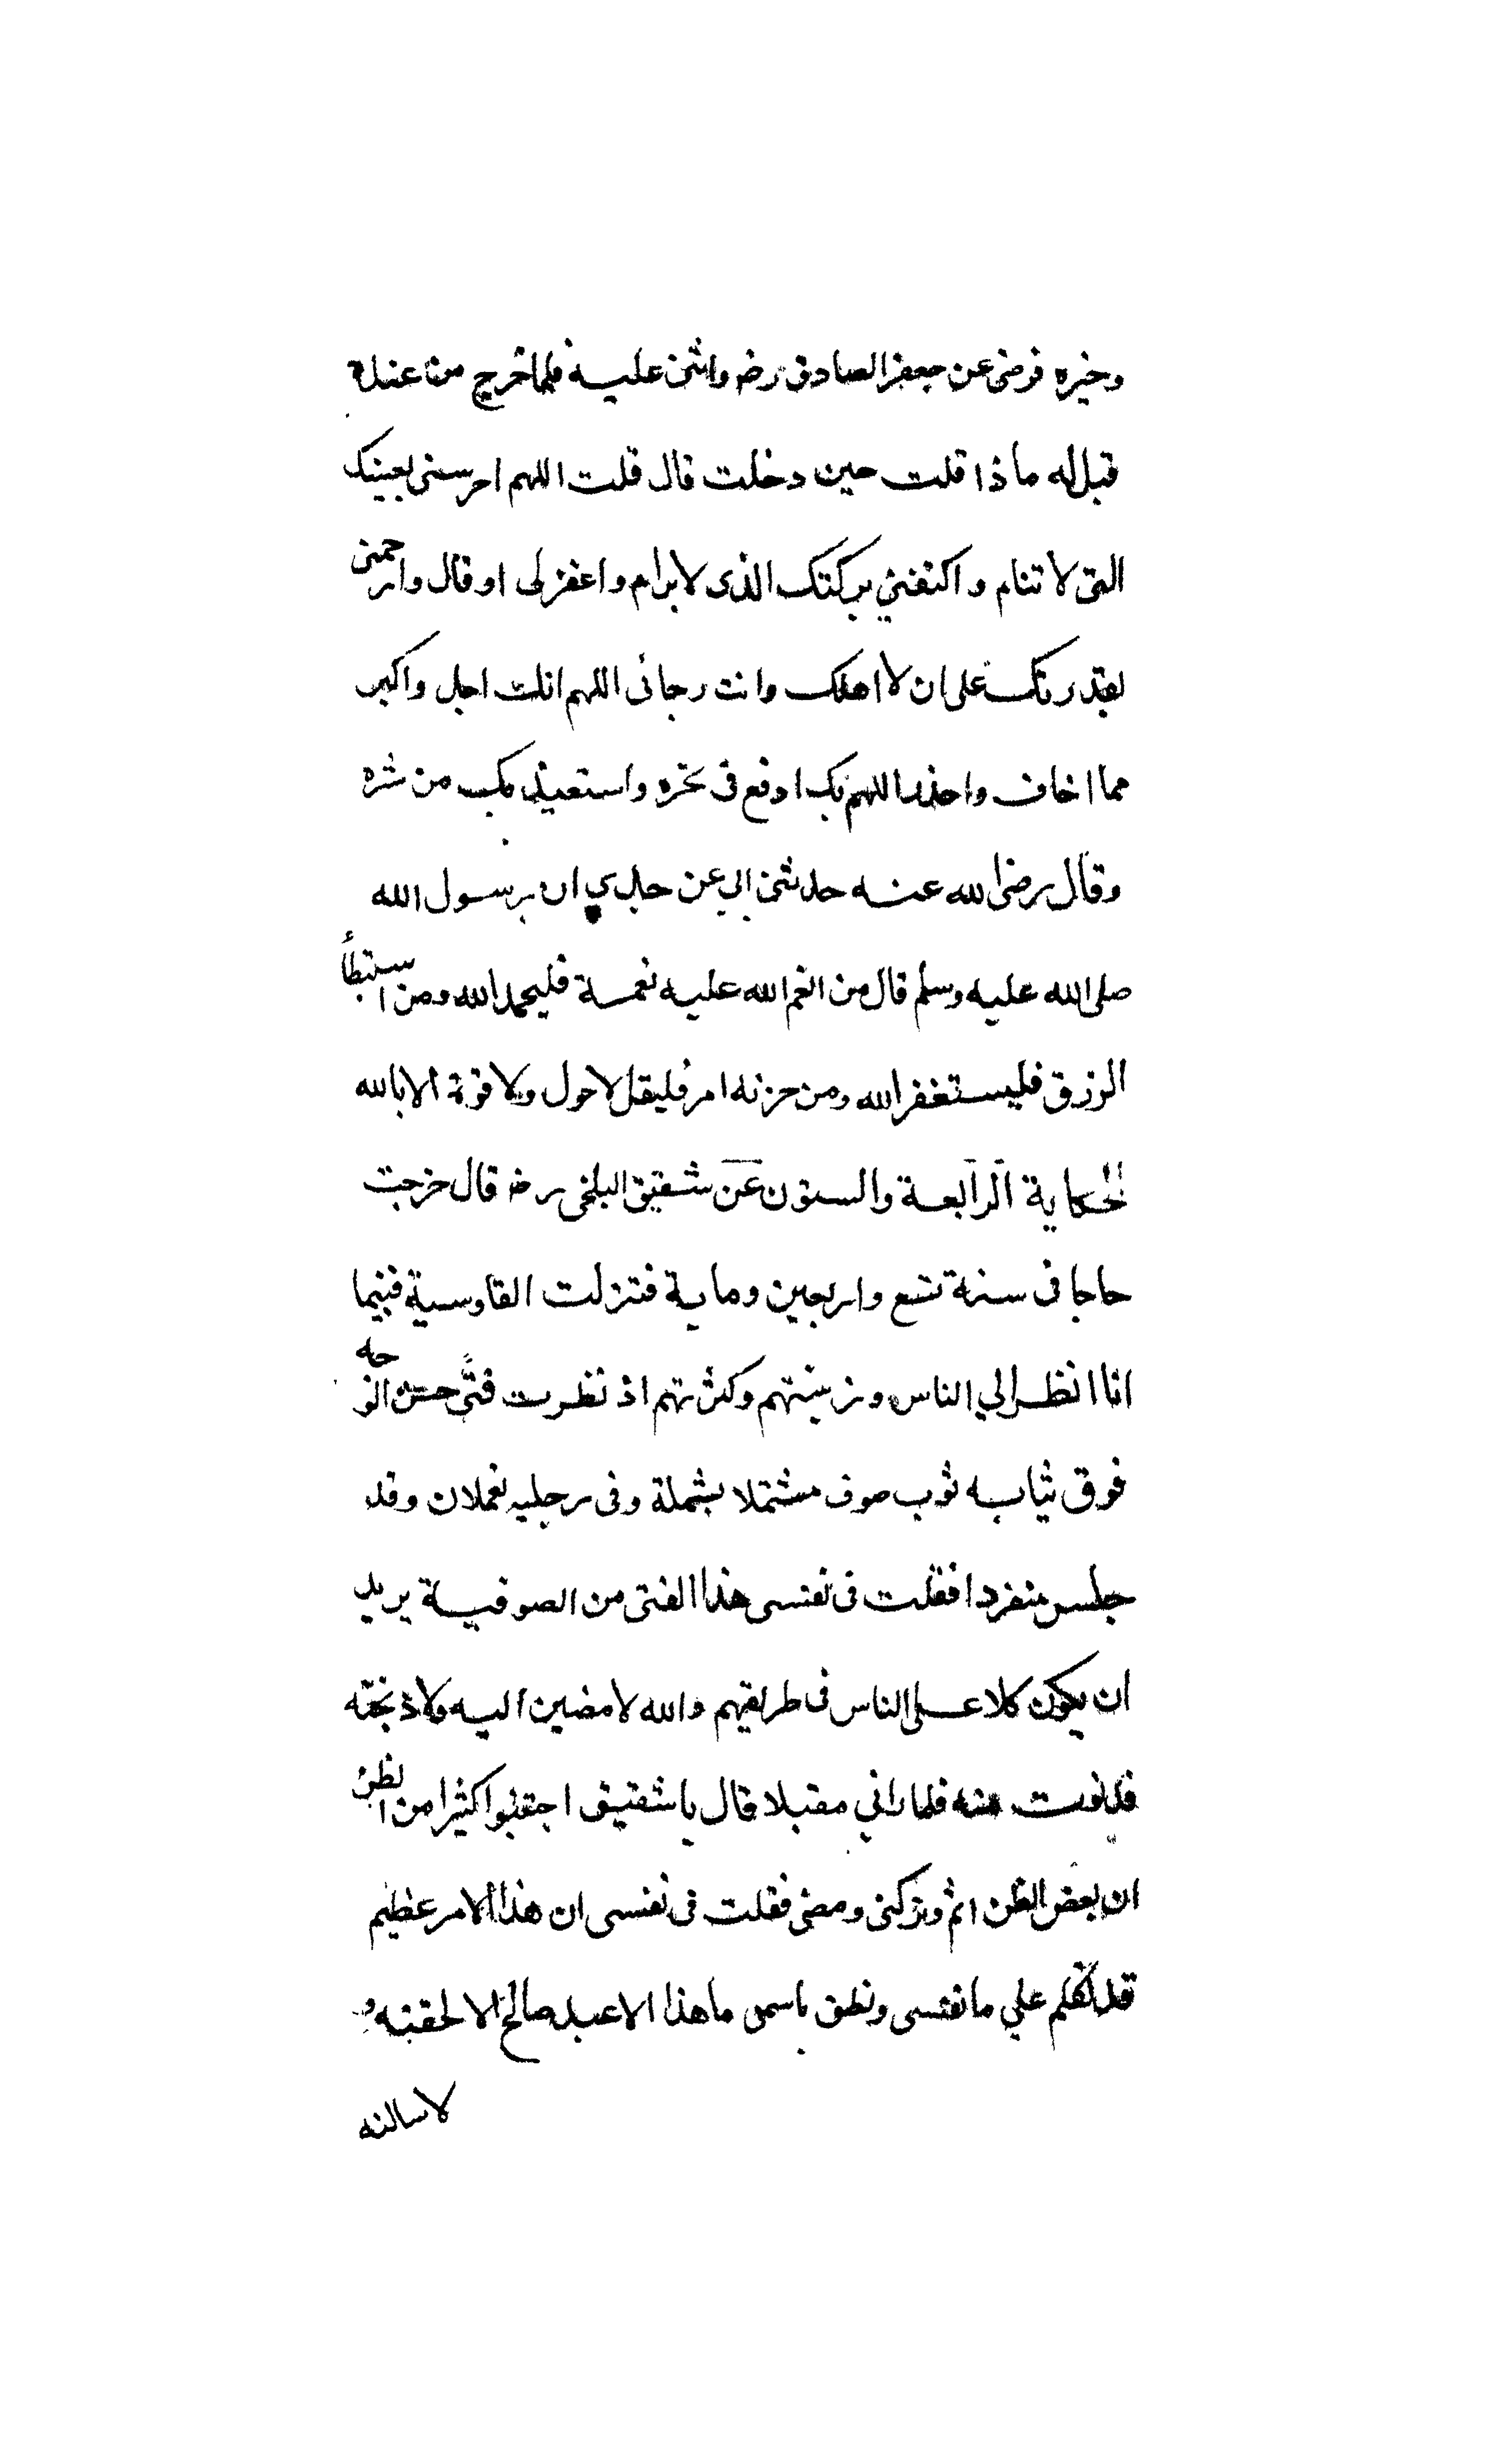 وخيره فرضى عن جعفر الصادق رضه واثنى عليه فلما خرج من عنده
قيل له ماذا قلت حين دخلت قال قلت اللهم احرسنى بعينك
التى لا تنام واكنفني ببركتك الذى لا يرام واغفر لى او قال وارحمنى
بقدرتك على ان لا اهلك وانت رجائى اللهم انك اجل واكبر
مما اخاف واحذر اللهم بك ادفع فى نحره واستعيذ بك من شره
وقال رضى الله عنه حدثنى ابي عن جدي ان رسول الله
صلى الله عليه وسلم قال من انعم الله عليه نعمة فليحمد الله ومن استبطأ
الرزق فليستغفر الله ومن حزنه امر فليقل لا حول ولا قوة الا بالله
الحكاية الرابعة والستون عن شقيق البلخى رضه قال خرجت
حاجا فى سنة تسع واربعين وماية فنزلت القادسية فبينما
انا انظر الي الناس وزينتهم وكثرتهم اذ نظرت فتًى حسن الوجه
فوق ثيابه ثوب صوف مشتملا بشملة وفى رجليه نعملان وقد
جلس منفردا فقلت فى نفسى هذا الفتى من الصوفية يريد
ان يكون كلا على الناس فى طريقهم والله لامضين اليه ولاوبخنه
فدنوت منه فلما راني مقبلا قال يا شقيق اجتنبوا كثيرا من الظن
ان بعض الظن اثم وتركنى ومضى فقلت فى نفسى ان هذا الامر عظيم
قد تكلم علي ما نفسى ونطق باسمى ما هذا الا عبد صالح لالحقنه و
لاسالنه